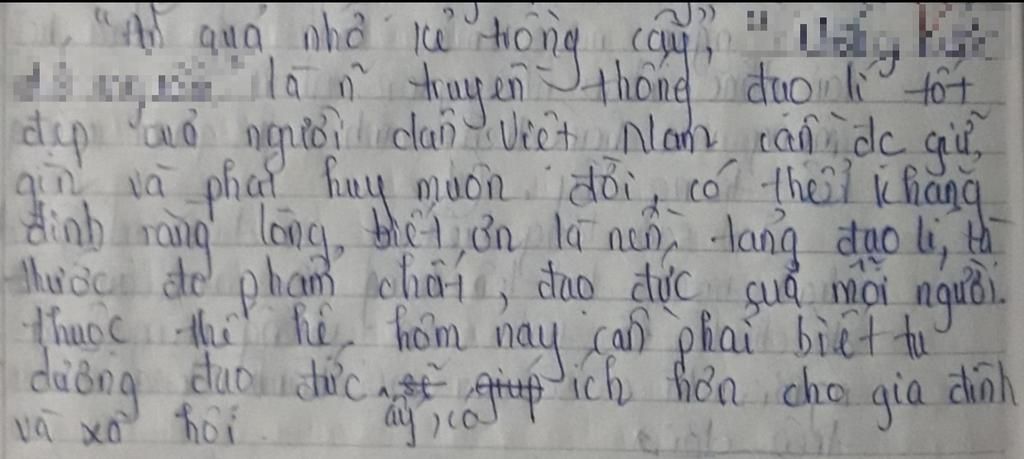 "Ăn quả nhớ kẻ trồng cây",
là n~ truyền thống đạo lí tốt
đẹp của người dân Việt Nam cần đc giữ
gìn và phát huy muôn đời, có thể khẳng
định rằng lòng biết ơn là nền tảng đạo lí, là
thước đo phẩm chất, đạo đức của mỗi người.
thuộc thế hệ hôm nay cần phải biết tu
dưỡng đạo đức ấy, có ích hơn cho gia đình
và xã hội